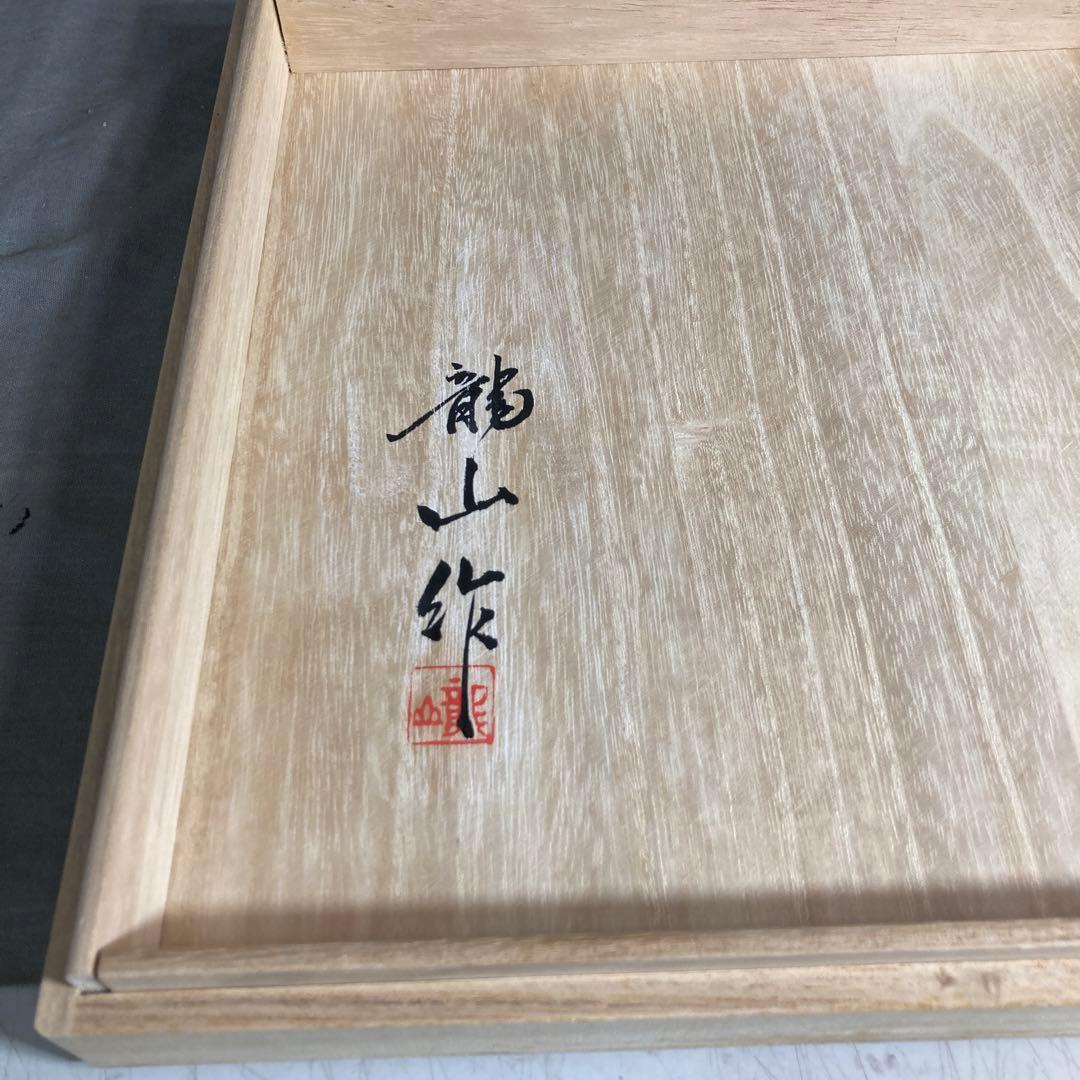 龍山作
龍山